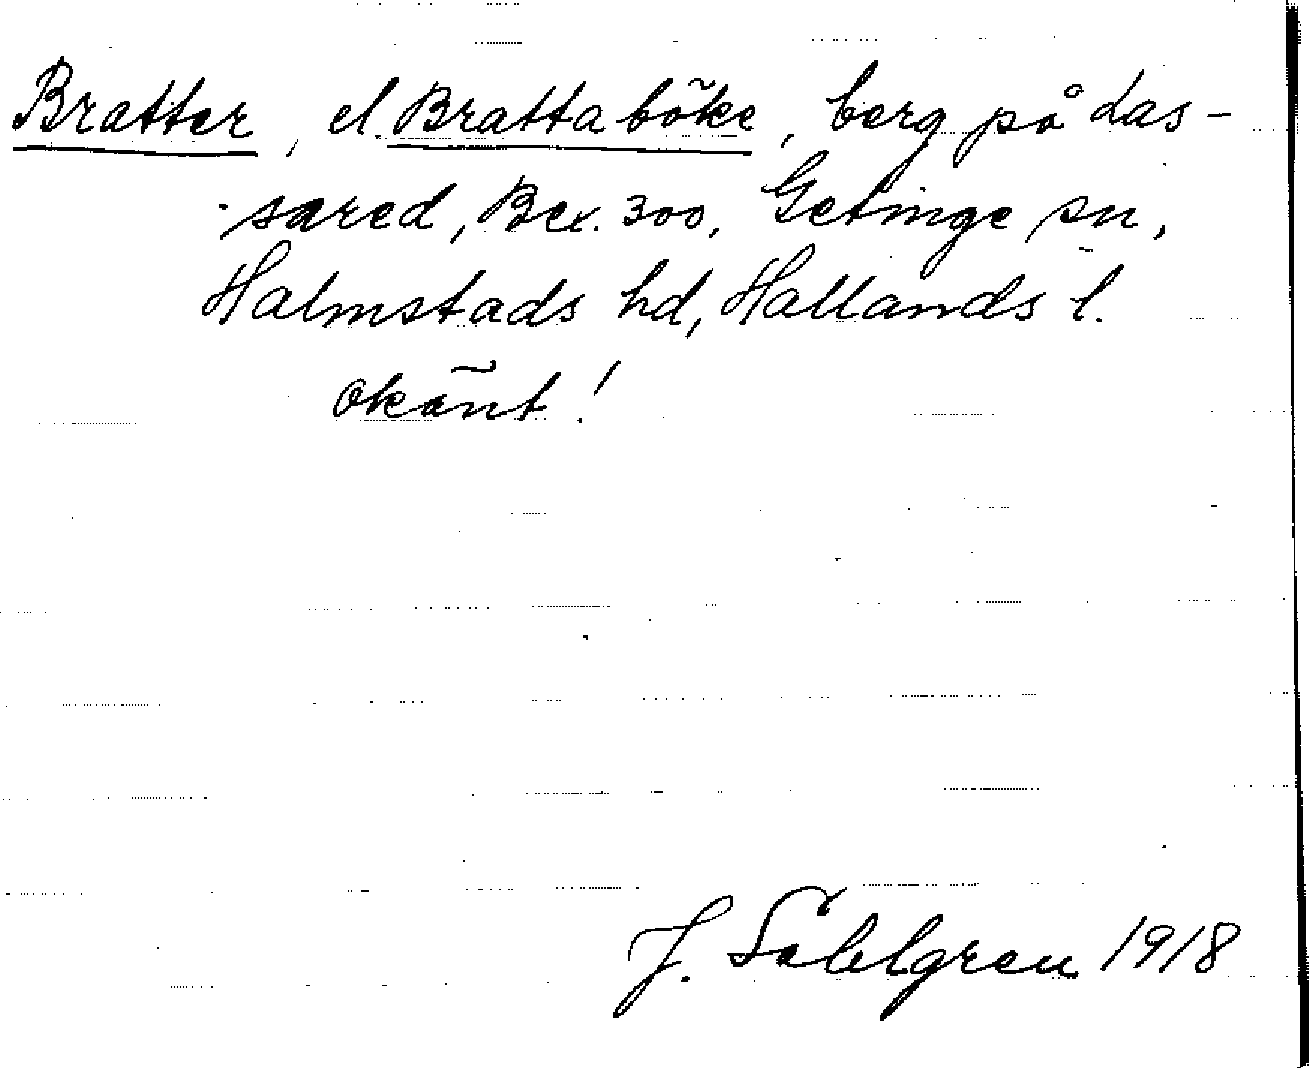 Bratter, el. Bratta böke, berg på Las-
sared, Bex. 300, Getinge sn,
Halmstads hd, Hallands l.
Okänt!
J. Sahlgren 1918